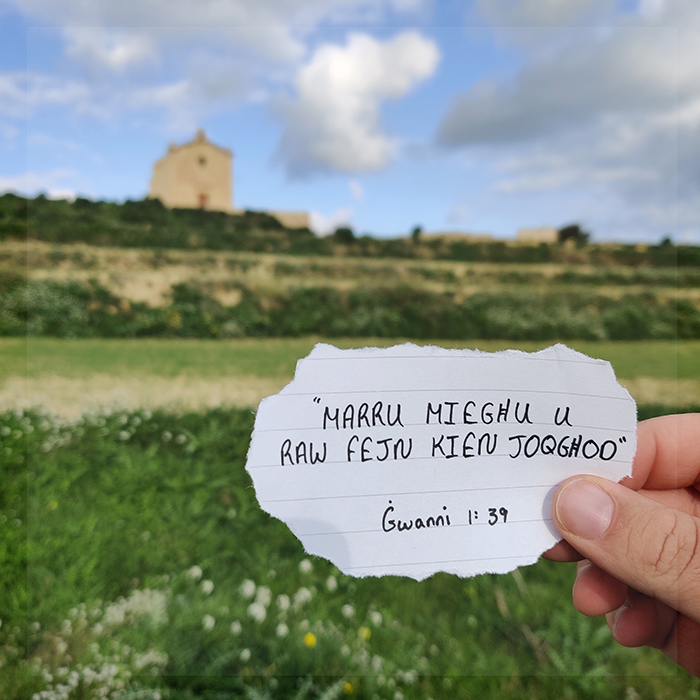 "MARRU MIEGHU U
RAW FEJN KIEN JOQGHOD"
Ġwanni 1:39